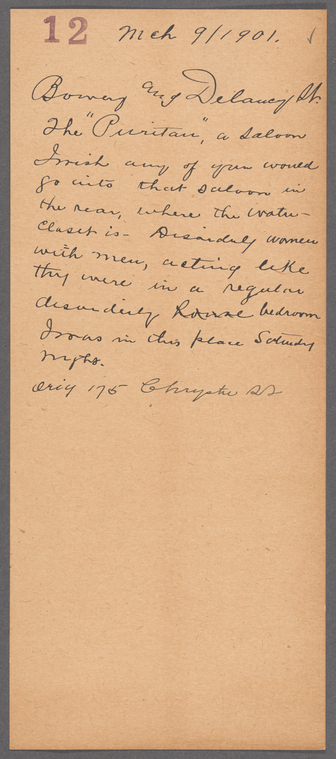 12 Mch 9/1901.
Bowery and Delancey St.
The "Puritan", a saloon
I wish any of you would
go into that saloon in
the rear, where the water-
closet is - Disorderly women
with men, acting like
they were in a regular
disorderly house bedroom
I was in this place Saturday
night.
Orig 175 Chrystie St